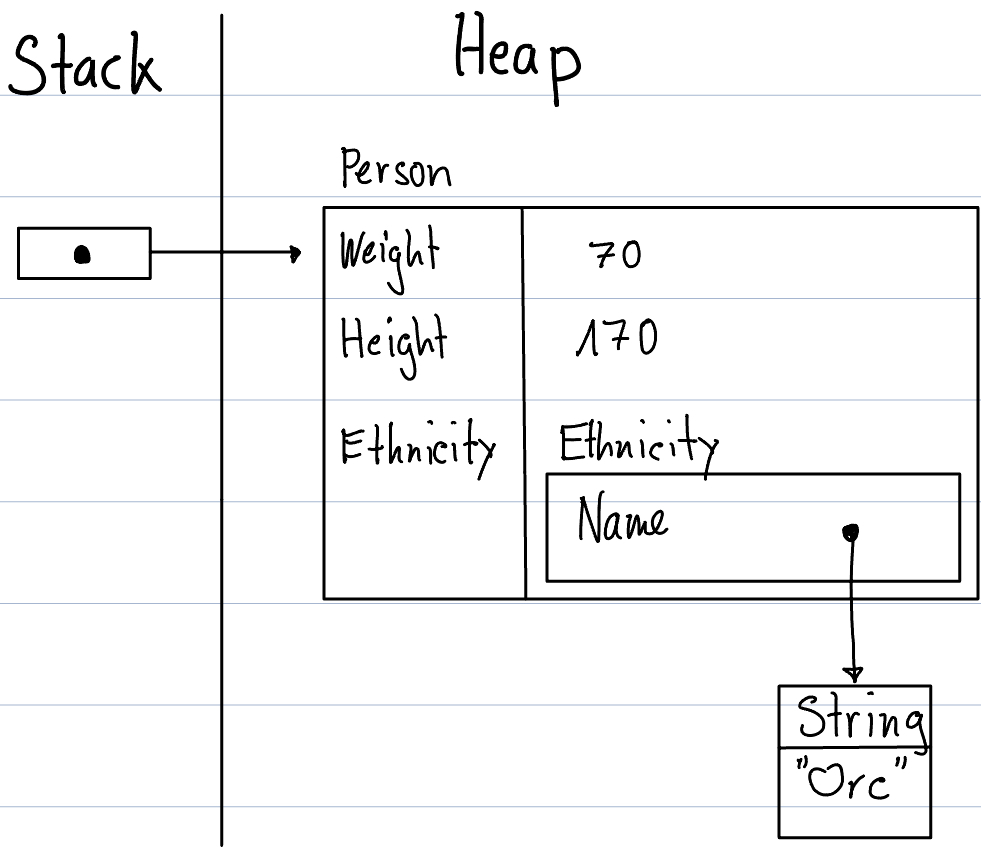 Stack Heap
Person
Weight 70
Height 170
Ethnicity Ethnicity
Name
String
"Orc"